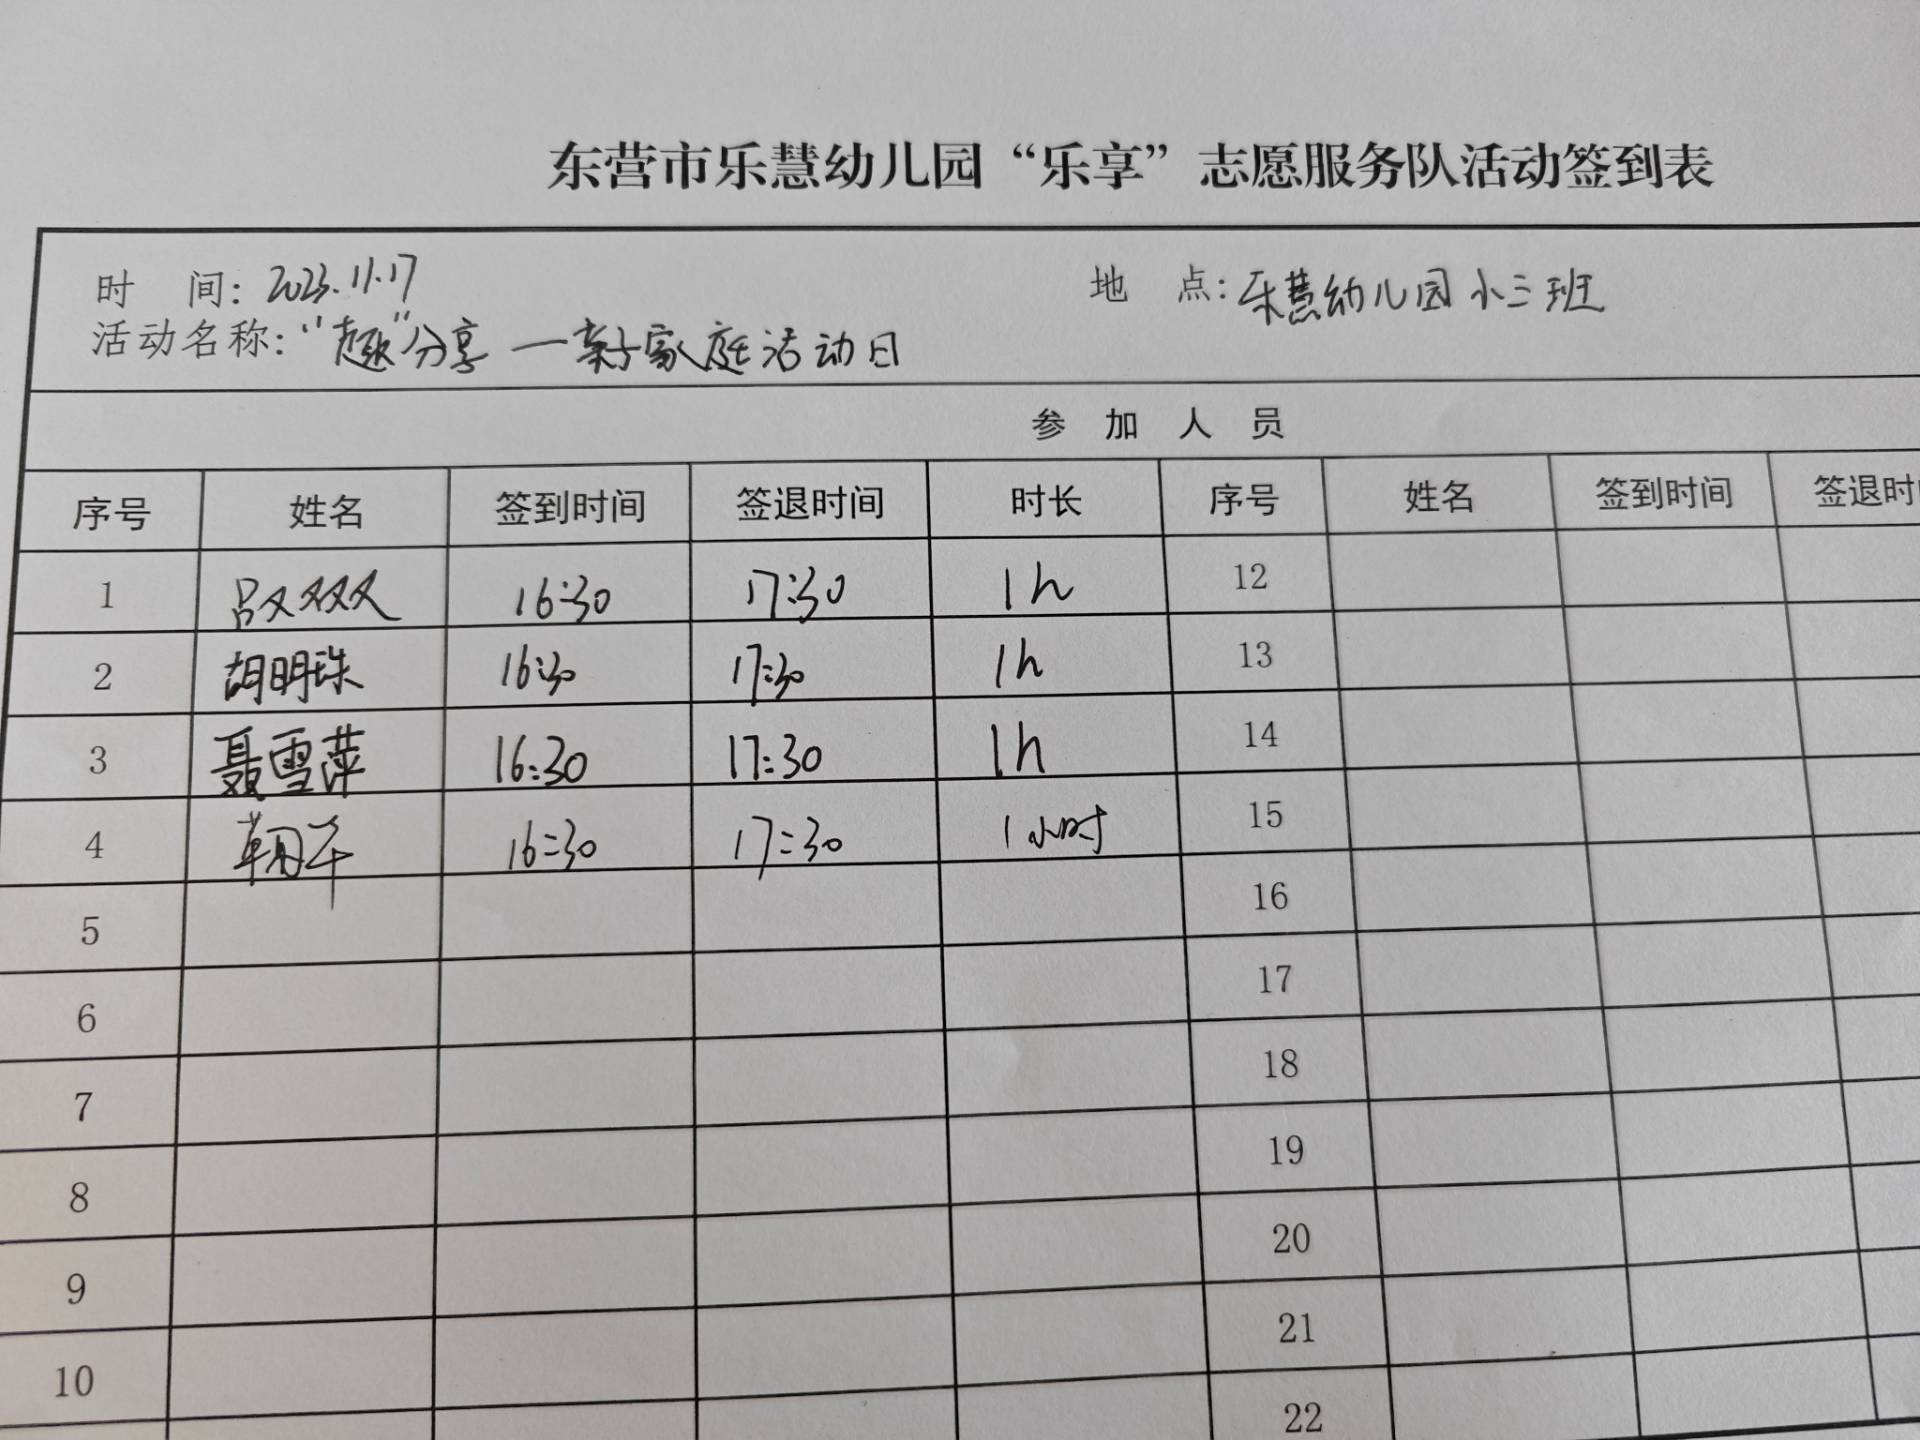 东营市乐慧幼儿园“乐享”志愿服务队活动签到表
时 间: 2023.11.17 地 点: 乐慧幼儿园小三班
活动名称: “趣”分享 — 亲子家庭活动日
参 加 人 员
序号 姓名 签到时间 签退时间 时长 序号 姓名 签到时间 签退时
1 吕双双 16:30 17:30 1h 12
2 胡明珠 16:30 17:30 1h 13
3 聂雪萍 16:30 17:30 1h 14
4 16:30 17:30 1小时 15
5 16
6 17
7 18
8 19
9 20
10 21
22